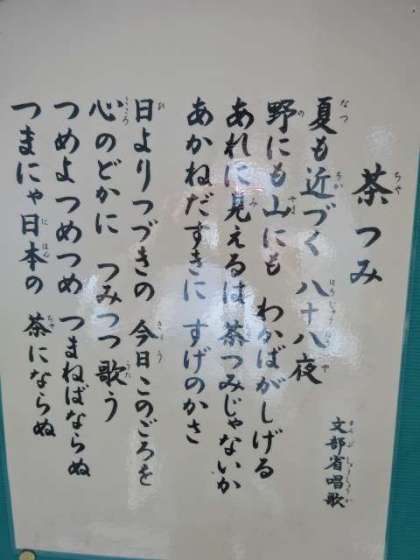 茶つみ
文部省唱歌
夏も近づく 八十八夜
野にも山にも わかばがしげる
あれに見えるは 茶つみじゃないか
あかねだすきに すげのかさ
日よりつづきの 今日このごろを
心のどかに つみつつ歌う
つめよつめつめ つまねばならぬ
つまにゃ日本の 茶にならぬ